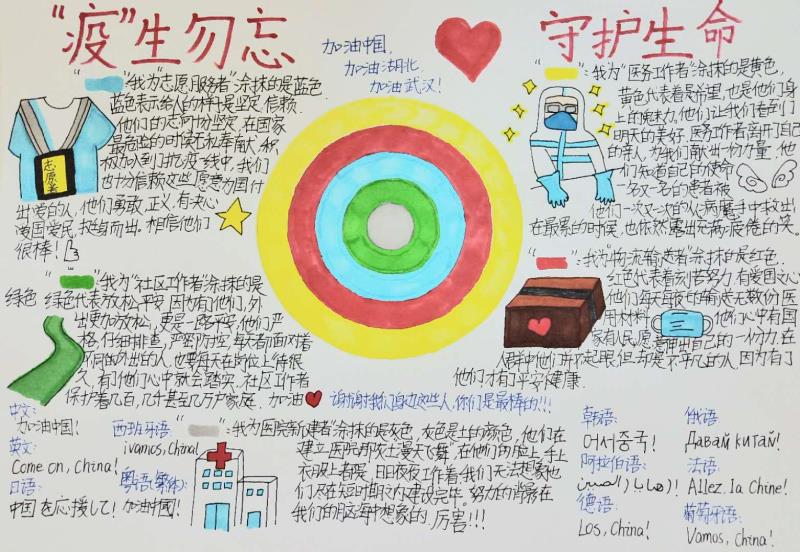 “疫”生勿忘
守护生命
加油中国,
加油湖北,
加油武汉!
“ ”我为“志愿服务者”涂抹的是蓝色
蓝色表示给人的样子是坚定,信赖
他们的志向十分坚定,在国家
最危险的时候
极加入到抗疫一线中,我们
也十分信赖这些愿意为国付
出爱的人,他们勇敢,正义,有决心
爱国爱民,挺身而出.相信他们
很棒!
志愿者
“ ”我为“医务工作者”涂抹的是黄色,
黄色代表着是希望,也是他们身
上的魅力,他们让我们看到了
明天的美好.医务工作者离开自己
的亲人,为我们献出一份力量,他
们知道自己的使命
一名又一名的患者被
他们一次又一次的从病魔手中救出
在最累的时候,也依然露出充满疲倦的笑。
“ ”我为“社区工作者”涂抹的是
绿色 绿色代表放松,平安,因为有他们,外
出更加放松,更是一路平安,他们严
格,仔细排查,严密防控,每天都面对着
不同的外出的人,也要每天在岗位上待很
久,有他们心中就会踏实.社区工作者
保护着几百,几千甚至几万户家庭.加油
“ ”我为“物流输送者”涂抹的是红色.
红色代表着刻苦努力,有爱国之心
他们每天每夜的输送无数份医
用材料 他们心中有国
家有人民愿意伸出自己的一份力,在
人群中他们并不起眼,但却是不平凡的人,因为有了
他们才有了平安健康.
谢谢对我们身边这些人,你们是最棒的!!!
中文:
加油中国!
英文:
Come on, China!
日语:
中国を応援して!
西班牙语:
¡vamos, China!
粤语(繁体):
加油中國!
“ ”我为“医院新建者”涂抹的是灰色,灰色是土的颜色,他们在
建立医院那“灰土漫天飞舞”,在他们的脸上,手上
衣服上者是.日日夜夜工作着,我们无法想象他
们尽在短时期之内建设完毕.努力的背影在
我们的脑海中想象的.厉害!!!
韩语:
어서중국!
阿拉伯语:
德语:
Los, China!
俄语:
Давай китай!
法语:
Allez. la Chine!
葡萄牙语:
Vamos, China!